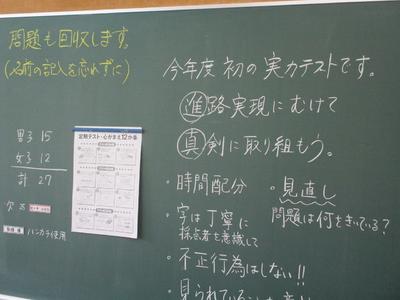 問題も回収します。
(名前の記入を忘れずに)
男子 15
女子 12
計 27
欠 25
ハンカチ使用
定期テスト・心がまえ12か条
今年度初の実力テストです。
進路実現にむけて
真剣に取り組もう。
・時間配分
・見直し
問題は何をきいている?
・字は丁寧に
採点者を意識して
・不正行為はしない!!